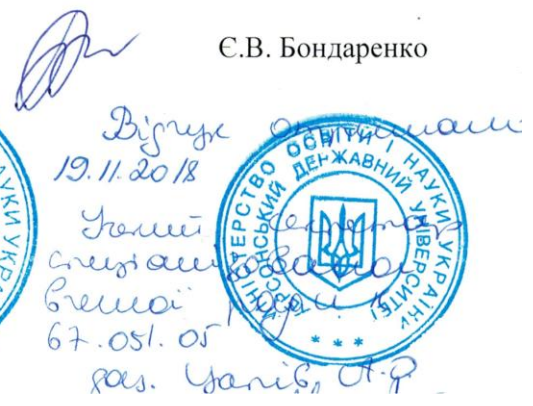 Є.В. Бондаренко
Відгук отримала
19.11.2018
Учений секретар
спеціалізованої
вченої ради
67.051.05
МІНІСТЕРСТВО ОСВІТИ І НАУКИ УКРАЇНИ
ХЕРСОНСЬКИЙ ДЕРЖАВНИЙ УНІВЕРСИТЕТ
* * *
НАУКИ УКРА